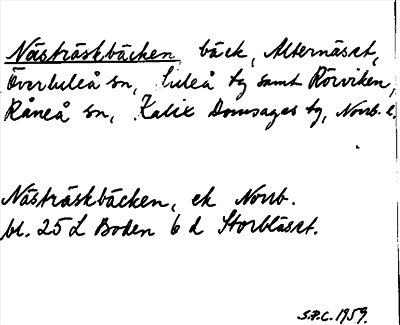 Nästräskbäcken, bäck, Alternäset,
Överluleå sn, Luleå tg samt Rörviken,
Råneå sn, Kalix Domsagas tg, Norrb. l.
Nästräskbäcken, ek Norrb.
bl. 25 L Boden 6 d Storblåset.
S.P.C. 1959.